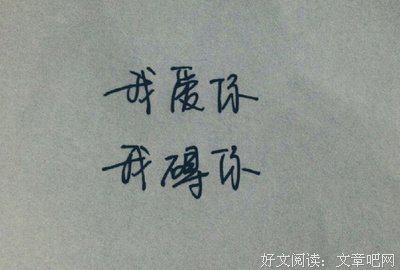 我爱你
我碍你
好文阅读：文章吧网